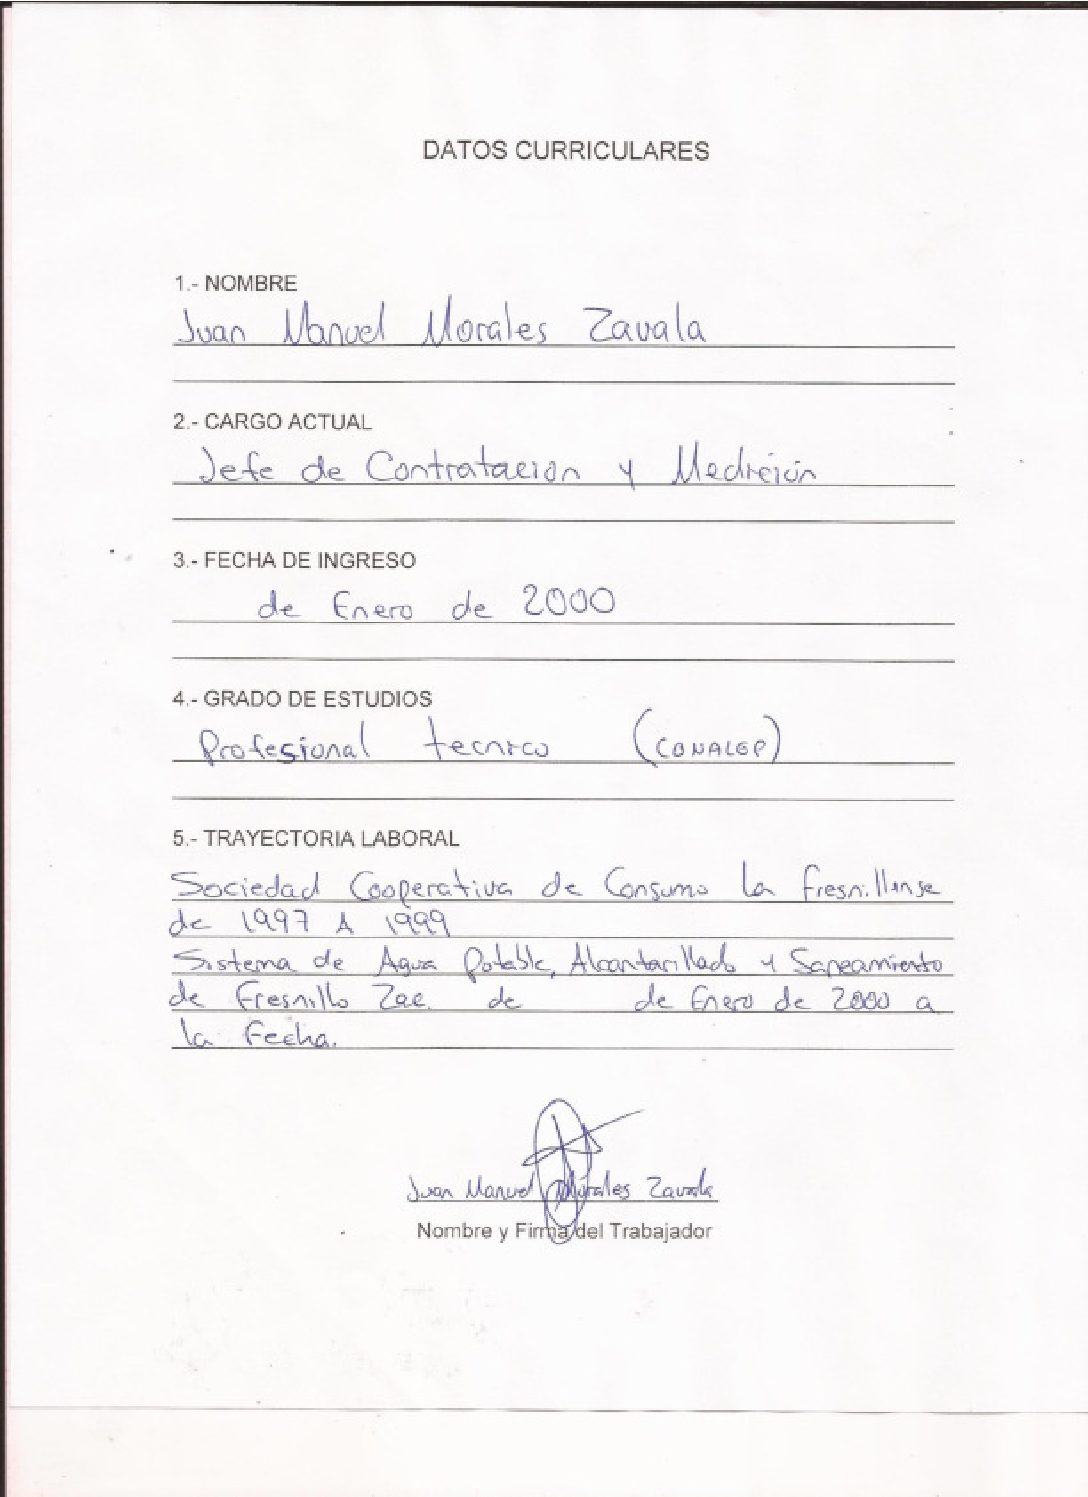 DATOS CURRICULARES
1.- NOMBRE
Juan Manuel Morales Zavala
2.- CARGO ACTUAL
Jefe de Contratacion y Medición
3.- FECHA DE INGRESO
de Enero de 2000
4.- GRADO DE ESTUDIOS
Profesional tecnico (CONALEP)
5.- TRAYECTORIA LABORAL
Sociedad Cooperativa de Consumo la fresnillense
de 1997 A 1999
Sistema de Agua Potable, Alcantarillado y Saneamiento
de Fresnillo Zac. de de Enero de 2000 a
la Fecha.
Juan Manuel Morales Zavala
Nombre y Firma del Trabajador